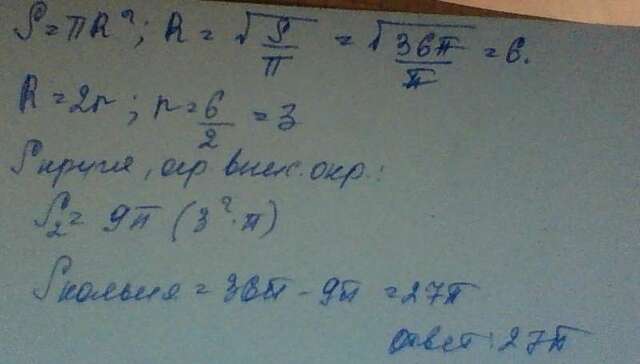 S = πR²; R = √(S/π) = √(36π/π) = 6.
R = 2r; r = 6/2 = 3
S круга, огр. впис. окр.:
S₂ = 9π (3²·π)
S кольца = 36π - 9π = 27π
ответ: 27π